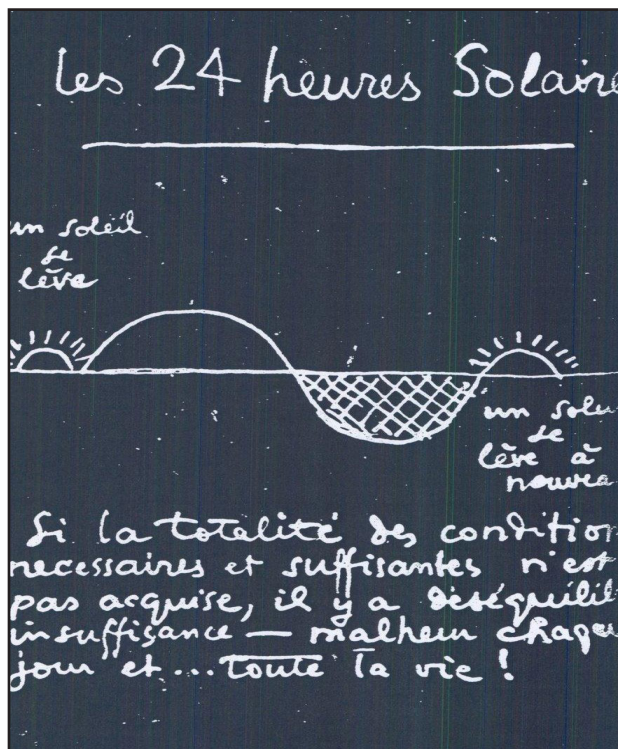 les 24 heures Solaire
un soleil
se
lève
un solei
se
lève à
nouvea
Si la totalité des condition
necessaires et suffisantes n'est
pas acquise, il y a déséquilib
insuffisance — malheur chaqu
jour et ... toute la vie !